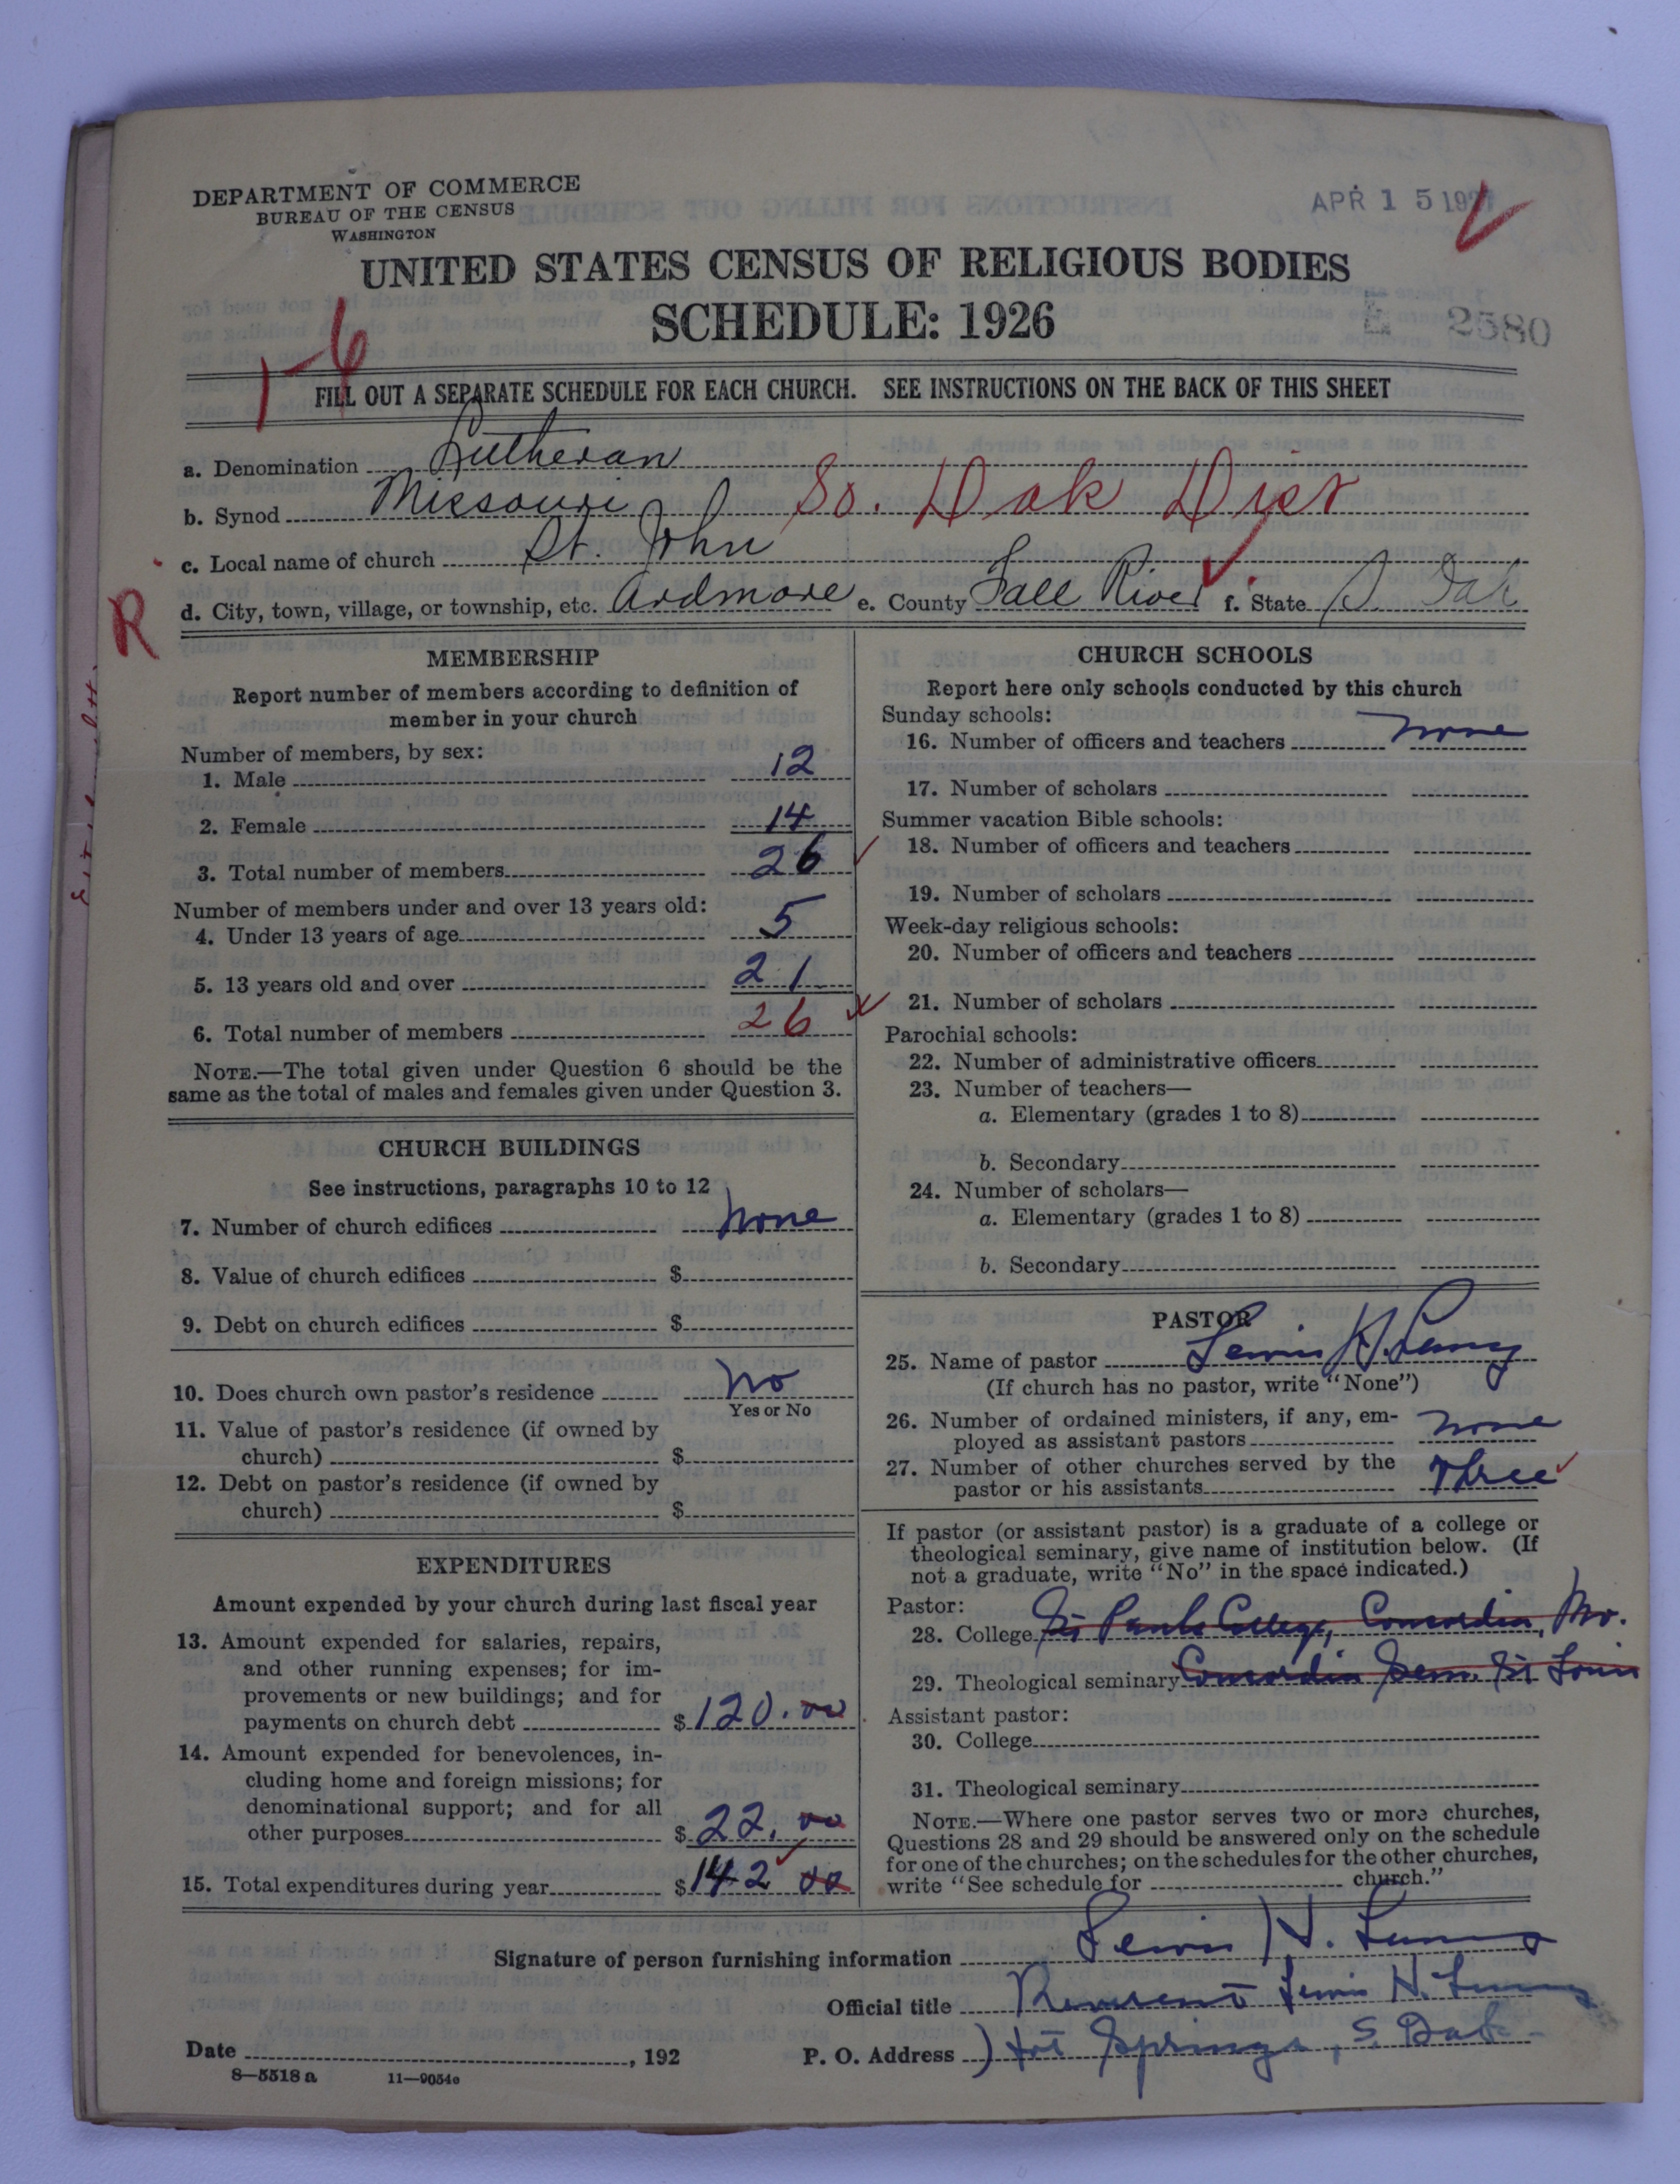 DEPARTMENT OF COMMERCE
BUREAU OF THE CENSUS
WASHINGTON
APR 15 1927
UNITED STATES CENSUS OF RELIGIOUS BODIES
SCHEDULE: 1926
2580
1-6
FILL OUT A SEPARATE SCHEDULE FOR EACH CHURCH. SEE INSTRUCTIONS ON THE BACK OF THIS SHEET
a. Denomination Lutheran
b. Synod Missouri So. Dak Dist
c. Local name of church St. John
R
d. City, town, village, or township, etc. Ardmore e. County Fall River f. State S. Dak
MEMBERSHIP
Report number of members according to definition of
member in your church
Number of members, by sex:
1. Male 12
2. Female 14
3. Total number of members 26
Number of members under and over 13 years old:
4. Under 13 years of age 5
5. 13 years old and over 21
6. Total number of members 26
NOTE.—The total given under Question 6 should be the
same as the total of males and females given under Question 3.
CHURCH BUILDINGS
See instructions, paragraphs 10 to 12
7. Number of church edifices None
8. Value of church edifices $
9. Debt on church edifices $
10. Does church own pastor's residence No
Yes or No
11. Value of pastor's residence (if owned by
church) $
12. Debt on pastor's residence (if owned by
church) $
EXPENDITURES
Amount expended by your church during last fiscal year
13. Amount expended for salaries, repairs,
and other running expenses; for im-
provements or new buildings; and for
payments on church debt $ 120.00
14. Amount expended for benevolences, in-
cluding home and foreign missions; for
denominational support; and for all
other purposes $ 22.00
15. Total expenditures during year $ 142 00
CHURCH SCHOOLS
Report here only schools conducted by this church
Sunday schools:
16. Number of officers and teachers none
17. Number of scholars
Summer vacation Bible schools:
18. Number of officers and teachers
19. Number of scholars
Week-day religious schools:
20. Number of officers and teachers
21. Number of scholars
Parochial schools:
22. Number of administrative officers
23. Number of teachers—
a. Elementary (grades 1 to 8)
b. Secondary
24. Number of scholars—
a. Elementary (grades 1 to 8)
b. Secondary
PASTOR
25. Name of pastor Lewis H.
(If church has no pastor, write "None")
26. Number of ordained ministers, if any, em-
ployed as assistant pastors none
27. Number of other churches served by the
pastor or his assistants Three
If pastor (or assistant pastor) is a graduate of a college or
theological seminary, give name of institution below. (If
not a graduate, write "No" in the space indicated.)
Pastor:
28. College St Pauls College, Concordia, Mo.
29. Theological seminary Concordia Sem. St Louis
Assistant pastor:
30. College
31. Theological seminary
NOTE.—Where one pastor serves two or more churches,
Questions 28 and 29 should be answered only on the schedule
for one of the churches; on the schedules for the other churches,
write "See schedule for church."
Signature of person furnishing information Lewis H.
Official title Reverend Lewis H.
Date , 192
P. O. Address Hot Springs, S. Dak.
8—5518 a 11—9054e